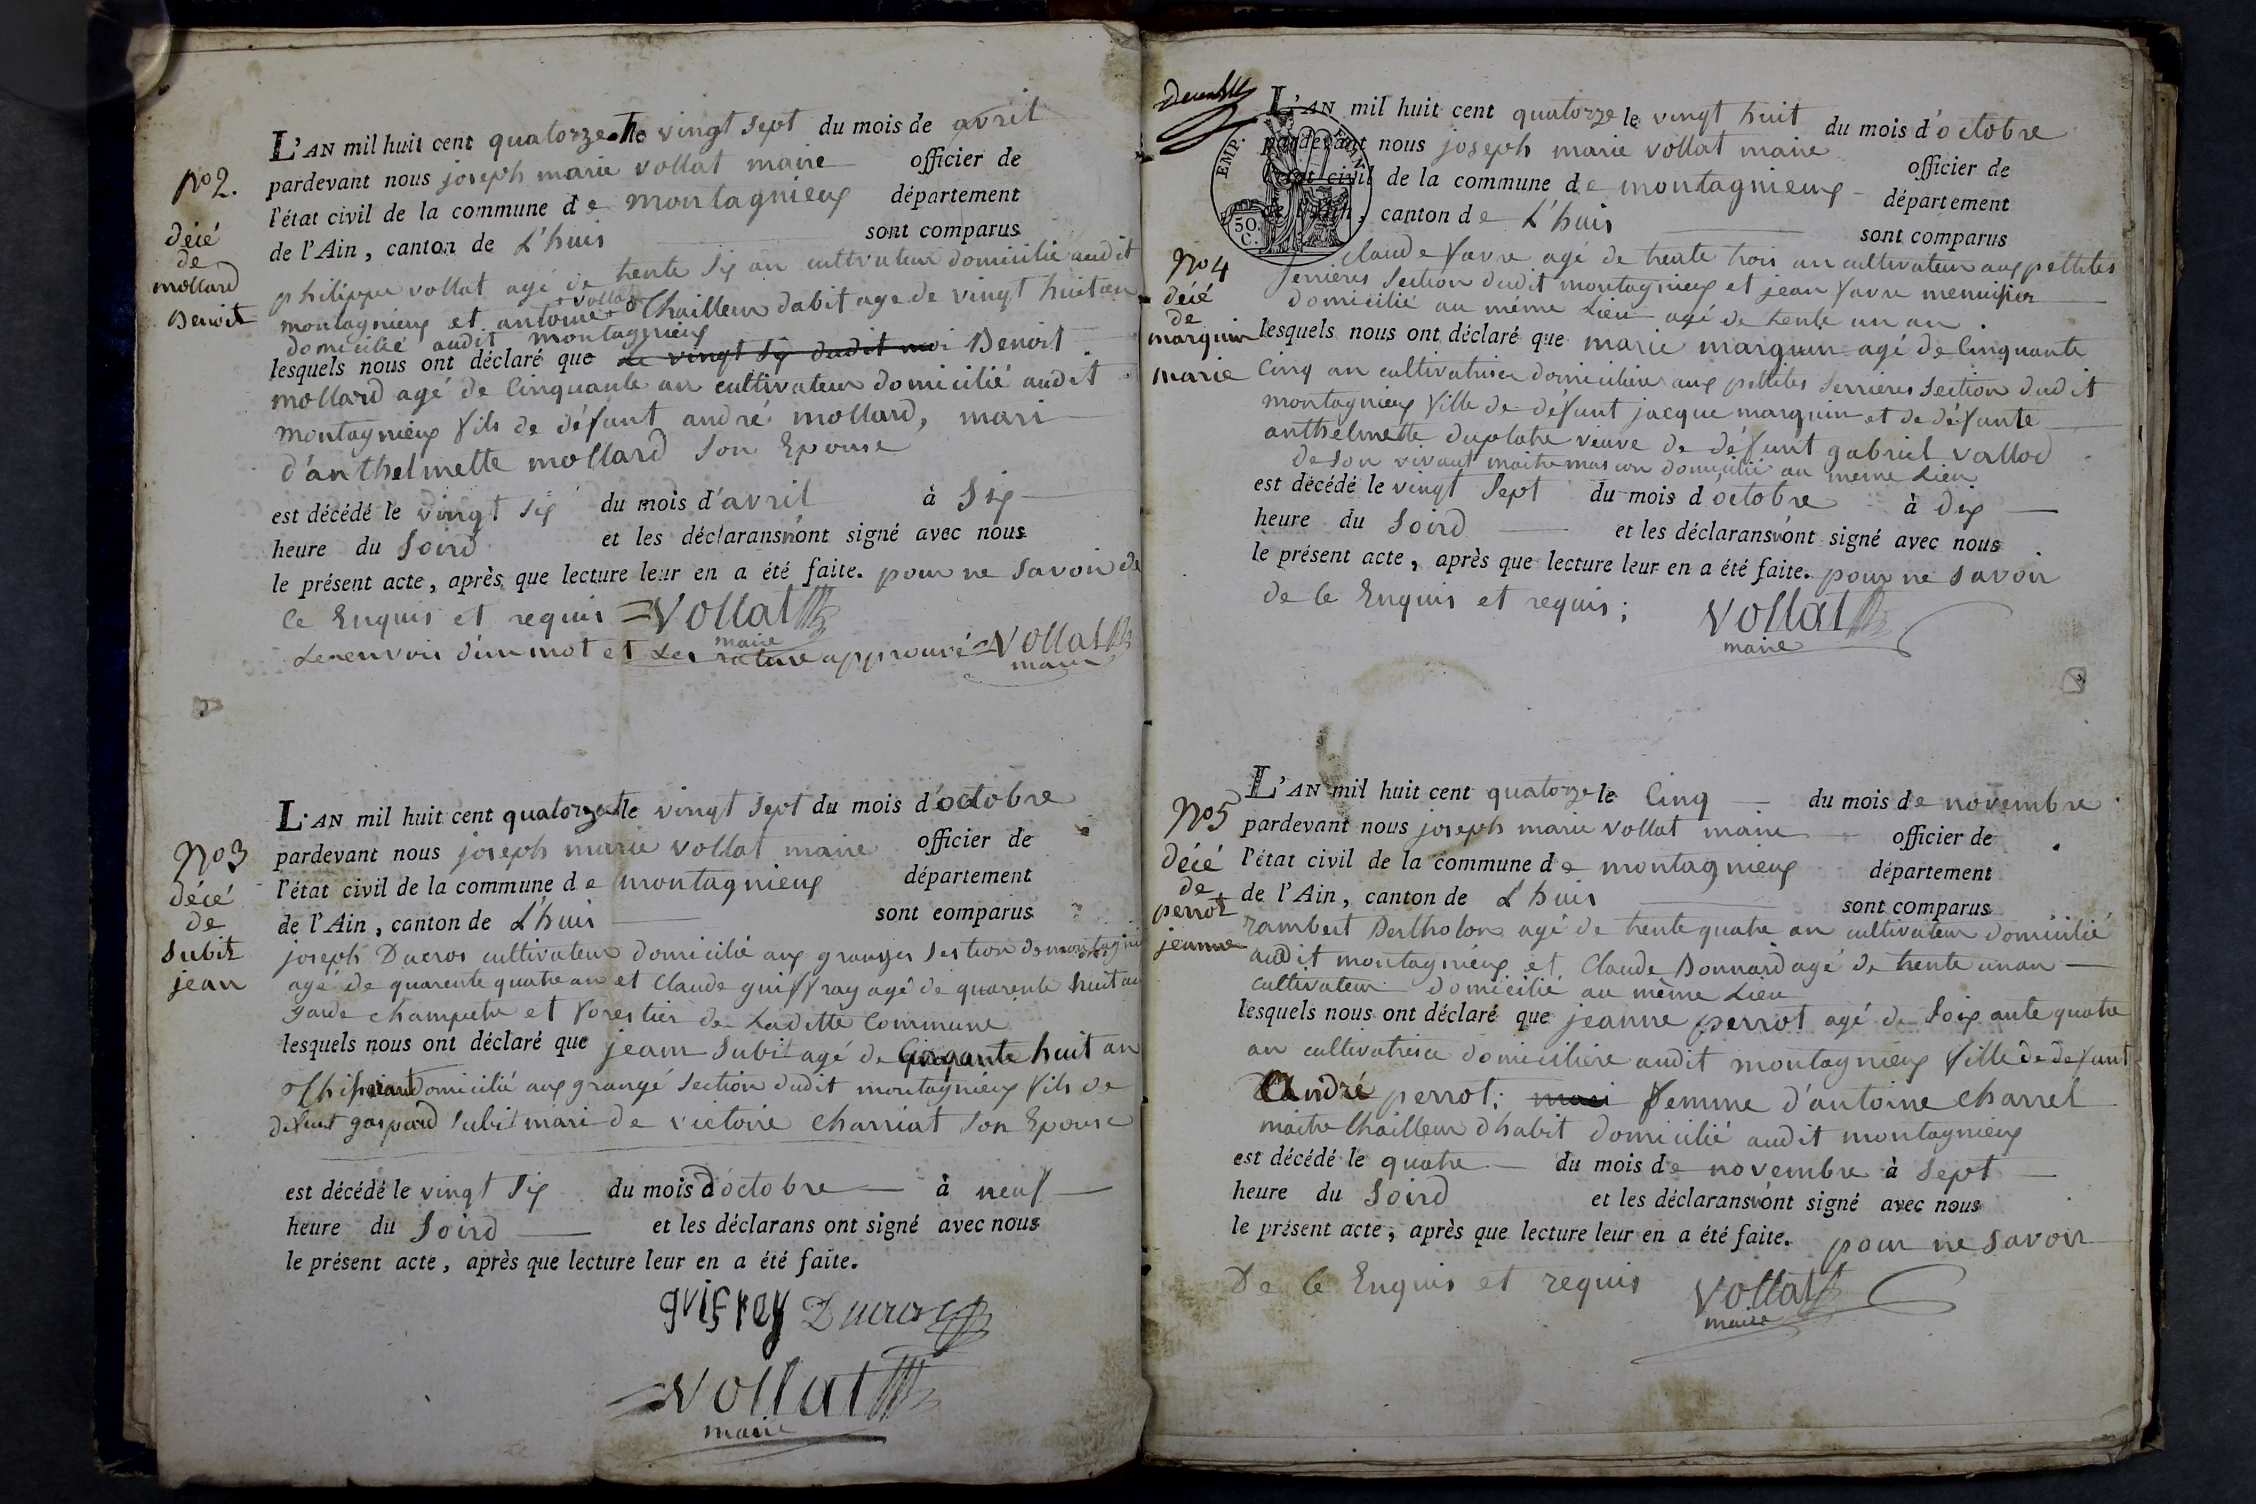 L'AN mil huit cent quatorze le vingt sept du mois de avril
pardevant nous joseph marie vollat maire officier de
l'état civil de la commune de montagnieux département
de l'Ain, canton de L'huis sont comparus
philippe vollat agé de trente six an cultivateur domicilié audit
montagnieux et antoine + vollat thailleur dabit age de vingt huit an
domicilié audit montagnieux
lesquels nous ont déclaré que le vingt six dudit moi Benoit
mollard agé de Cinquante an cultivateur domicilié audit
montagnieux fils de défunt andré mollard, mari
d'anthelmette mollard son Epouse
est décédé le vingt six du mois d'avril à six
heure du soird et les déclarans n'ont signé avec nous
le présent acte, après que lecture leur en a été faite. pour ne savoir de
ce Enquis et requis Vollat
maire
Le renvois d'un mot et les rature approuvé Vollat
maire
No 2.
décé
de
mollard
Benoit
L'AN mil huit cent quatorze le vingt sept du mois d'octobre
pardevant nous joseph marie vollat maire officier de
l'état civil de la commune de montagnieux département
de l'Ain, canton de L'huis sont comparus
joseph Ducros cultivateur domicilié aux granges section de
agé de quarente quatre an et Claude guiffray agé de quarente huit an
garde champetre et forestier de Laditte Commune
lesquels nous ont déclaré que jean Subit agé de Cinqante huit an
domicilié aux grangé section dudit montagnieux fils de
defunt gaspard subit mari de victoire charriat son Epouse
est décédé le vingt six du mois d'octobre à neuf
heure du soird et les déclarans ont signé avec nous
le présent acte, après que lecture leur en a été faite.
guifray Ducros
Vollat
maire
No 3
décé
de
Subit
jean
L'AN mil huit cent quatorze le vingt huit du mois d'octobre
pardevant nous joseph marie vollat maire officier de
l'état civil de la commune de montagnieux département
de l'Ain, canton de L'huis sont comparus
EMP.
50.
C.
Claude favre agé de trente trois an cultivateur aux pettites
serrieres section dudit montagnieux et jean favre menuisier
domicilié au même Lieu agé de trente un an
lesquels nous ont déclaré que marie marquin agé de Cinquante
Cinq an cultivatrice domiciliére aux pettites serrieres section dudit
montagnieux fille de défunt jacque marquin et de défunte
anthelmette duplatre veuve de défunt gabriel vallod
de son vivant maitre masson domicilié au même Lieu
est décédé le vingt sept du mois d octobre à dix
heure du soird et les déclarans n'ont signé avec nous
le présent acte, après que lecture leur en a été faite. pour ne savoir
de ce Enquis et requis; Vollat
maire
No 4
décé
de
marquin
marie
L'AN mil huit cent quatorze le Cinq du mois de novembre
pardevant nous joseph marie vollat maire officier de
l'état civil de la commune de montagnieux département
de l'Ain, canton de L'huis sont comparus
rambert Bertholon agé de trente quatre an cultivateur domicilié
audit montagnieux et Claude Bonnard agé de trente un an
cultivateur domicilié au même Lieu
lesquels nous ont déclaré que jeanne perrot agé de soix ante quatre
an cultivatrice domiciliére audit montagnieux fille de defunt
André perrot; mari femme d'antoine charrel
maitre thailleur dhabit domicilié audit montagnieux
est décédé le quatre du mois de novembre à sept
heure du soird et les déclarans n'ont signé avec nous
le présent acte, après que lecture leur en a été faite. pour ne savoir
De ce Enquis et requis Vollat
maire
No 5
décé
de
perrot
jeanne